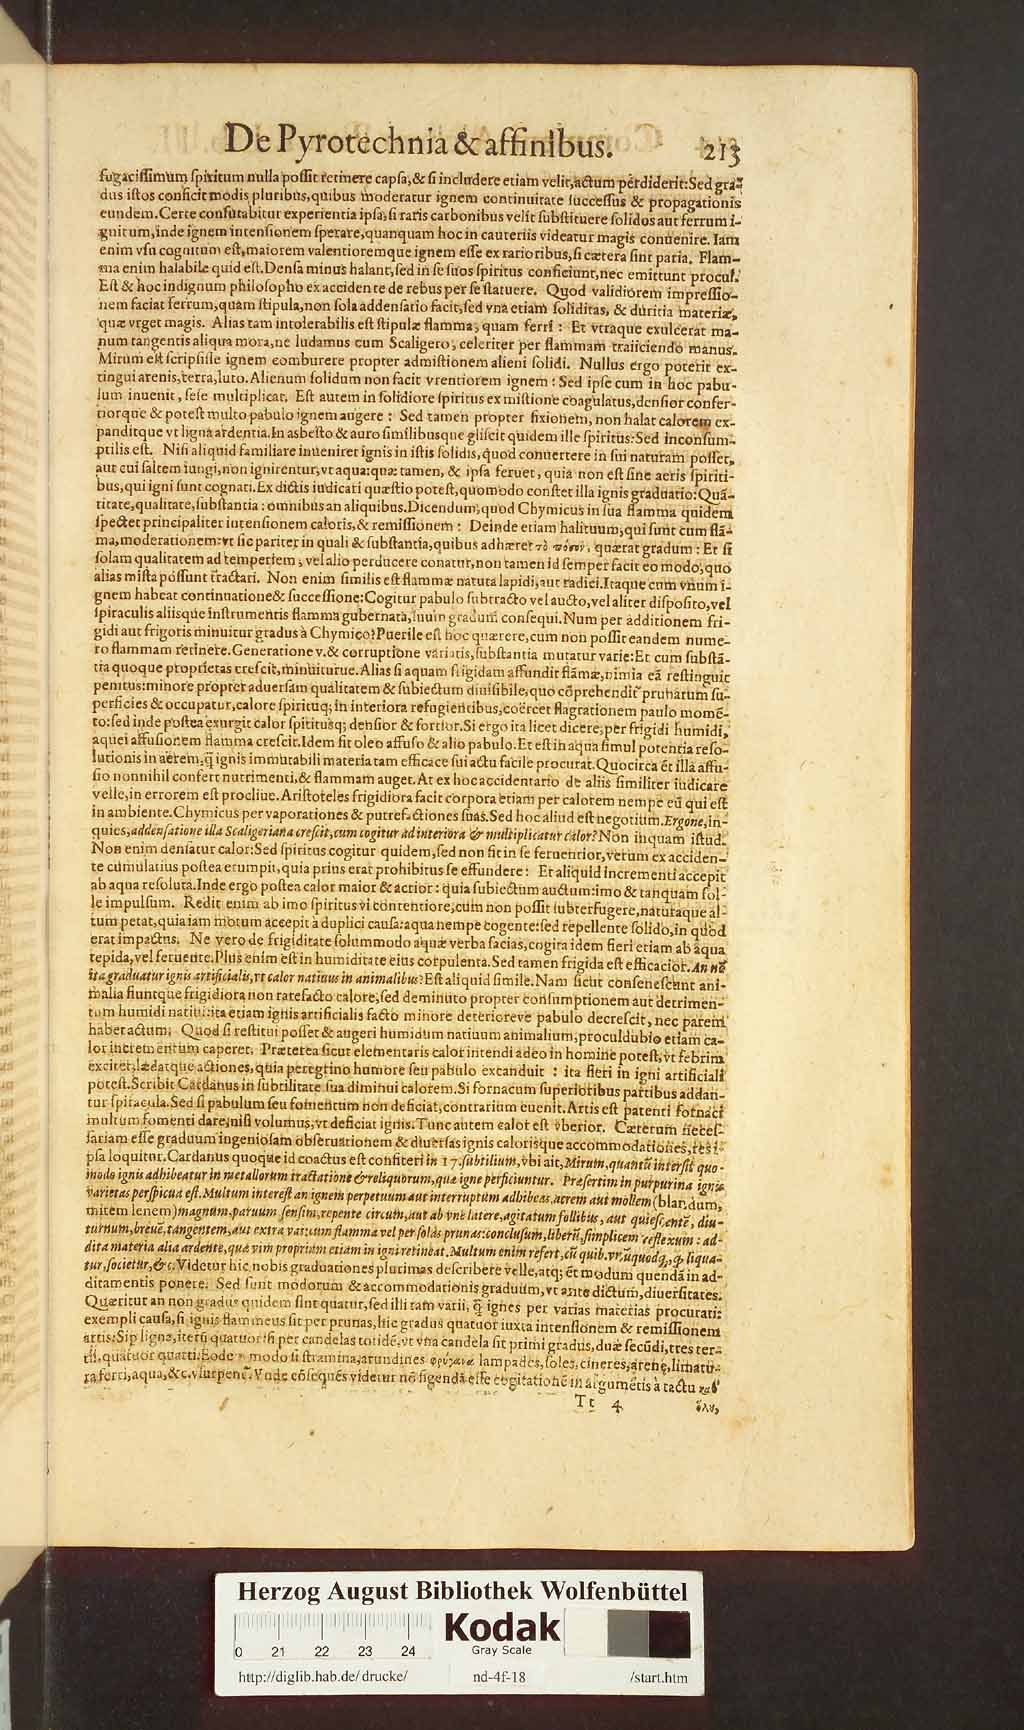 De Pyrotechnia & affinibus. 213
fugacissimum spiritum nulla possit retinere capsa, & si includere etiam velit, actum perdiderit: Sed gra-
dus istos conficit modis pluribus, quibus moderatur ignem continuitate successus & propagationis
eundem. Certe confutabitur experientia ipsa, si raris carbonibus velit substituere solidos aut ferrum i-
gnitum, inde ignem intensionem sperare, quanquam hoc in cauteriis videatur magis conuenire. Iam
enim vsu cognitum est, maiorem valentioremque ignem esse ex rarioribus, si cætera sint paria. Flam-
ma enim halabile quid est. Densa minus halant, sed in se suos spiritus conficiunt, nec emittunt procul.
Est & hoc indignum philosopho ex accidente de rebus per se statuere. Quod validiorem impressio-
nem faciat ferrum, quam stipula, non sola addensatio facit, sed vna etiam soliditas, & duritia materiæ,
quæ vrget magis. Alias tam intolerabilis est stipulæ flamma, quam ferri: Et vtraque exulcerat ma-
num tangentis aliqua mora, ne ludamus cum Scaligero, celeriter per flammam traiiciendo manus.
Mirum est scripsisse ignem comburere propter admistionem alieni solidi. Nullus ergo poterit ex-
tingui arenis, terra, luto. Alienum solidum non facit vrentiorem ignem: Sed ipse cum in hoc pabu-
lum inuenit, sese multiplicat. Est autem in solidiore spiritus ex mistione coagulatus, densior confer-
tiorque & potest multo pabulo ignem augere: Sed tamen propter fixionem, non halat calorem ex-
panditque vt ligna ardentia. In asbesto & auro similibusque gliscit quidem ille spiritus: Sed inconsum-
ptilis est. Nisi aliquid familiare inueniret ignis in istis solidis, quod conuertere in sui naturam posset,
aut cui saltem iungi, non ignirentur, vt aqua: quæ tamen, & ipsa feruet, quia non est sine aeris spiriti-
bus, qui igni sunt cognati. Ex dictis iudicari quæstio potest, quomodo constet illa ignis graduatio: Quā-
titate, qualitate, substantia: omnibus an aliquibus. Dicendum, quod Chymicus in sua flamma quidem
spectet principaliter intensionem caloris, & remissionem: Deinde etiam halituum, qui sunt cum flā-
ma, moderationem: vt sic pariter in quali & substantia, quibus adhæret τὸ πόσον, quærat gradum: Et si
solam qualitatem ad temperiem, vel alio perducere conatur, non tamen id semper facit eo modo, quo
alias mista possunt tractari. Non enim similis est flammæ natura lapidi, aut radici. Itaque cum vnum i-
gnem habeat continuatione & successione: Cogitur pabulo subtracto vel aucto, vel aliter disposito, vel
spiraculis aliisque instrumentis flamma gubernata, suum gradum consequi. Num per additionem fri-
gidi aut frigoris minuitur gradus à Chymico? Puerile est hoc quærere, cum non possit eandem nume-
ro flammam retinere. Generatione v. & corruptione variatis, substantia mutatur varie: Et cum substā-
tia quoque proprietas crescit, minuiturue. Alias si aquam frigidam affundit flāmæ, nimia eā restinguit
penitus: minore propter aduersam qualitatem & subiectum diuisibile, quo cōprehendit prunarum su-
perficies & occupatur, calore spirituq; in interiora refugientibus, coërcet flagrationem paulo momē-
to: sed inde postea exurgit calor spiritusq; densior & fortior. Si ergo ita licet dicere, per frigidi humidi,
aquei affusionem flamma crescit. Idem fit oleo affuso & alio pabulo. Et est in aqua simul potentia reso-
lutionis in aërem, q̃ ignis immutabili materia tam efficace sui actu facile procurat. Quocirca ēt illa affu-
sio nonnihil confert nutrimenti, & flammam auget. At ex hoc accidentario de aliis similiter iudicare
velle, in errorem est procliue. Aristoteles frigidiora facit corpora etiam per calorem nempe eū qui est
in ambiente. Chymicus per vaporationes & putrefactiones suas. Sed hoc aliud est negotium. Ergone, in-
quies, addensatione illa Scaligeriana crescit, cum cogitur ad interiora & multiplicatur calor? Non inquam istud.
Non enim densatur calor: Sed spiritus cogitur quidem, sed non fit in se feruentior, verum ex acciden-
te cumulatius postea erumpit, quia prius erat prohibitus se effundere: Et aliquid incrementi accepit
ab aqua resoluta. Inde ergo postea calor maior & acrior: quia subiectum auctum: imo & tanquam fol-
le impulsum. Redit enim ab imo spiritus vi contentiore, cum non possit subterfugere, naturaque al-
tum petat, quia iam motum accepit à duplici causa: aqua nempe cogente: sed repellente solido, in quod
erat impactus. Ne vero de frigiditate solummodo aquæ verba facias, cogita idem fieri etiam ab aqua
tepida, vel feruente. Plus enim est in humiditate eius corpulenta. Sed tamen frigida est efficacior. An nō
ita graduatur ignis artificialis, vt calor natiuus in animalibus? Est aliquid simile. Nam sicut consenescunt ani-
malia fiuntque frigidiora non rarefacto calore, sed deminuto propter consumptionem aut detrimen-
tum humidi natiui: ita etiam ignis artificialis facto minore deterioreve pabulo decrescit, nec parem
habet actum. Quod si restitui posset & augeri humidum natiuum animalium, proculdubio etiam ca-
lor incrementum caperet. Præterea sicut elementaris calor intendi adeo in homine potest, vt febrim
excitet, lædatque actiones, quia peregrino humore seu pabulo excanduit: ita fieri in igni artificiali
potest. Scribit Cardanus in subtilitate sua diminui calorem. Si fornacum superioribus partibus addan-
tur spiracula. Sed si pabulum seu fomentum non deficiat, contrarium euenit. Artis est patenti fornaci
multum fomenti dare, nisi volumus, vt deficiat ignis. Tunc autem calor est vberior. Cæterum neces-
sariam esse graduum ingeniosam obseruationem & diuersas ignis calorisque accommodationes, res i-
psa loquitur. Cardanus quoque id coactus est confiteri in 17. subtilium, vbi ait, Mirum, quantū intersit quo-
modo ignis adhibeatur in metallorum tractatione & reliquorum, quæ igne perficiuntur. Præsertim in purpurina ignis
varietas perspicua est. Multum interest an ignem perpetuum aut interruptum adhibeas, acrem aut mollem (blandum,
mitem lenem) magnum, paruum sensim, repente circum, aut ab vno latere, agitatum follibus, aut quiescentē, diu-
turnum, breuē, tangentem, aut extra vas: cum flamma vel per solas prunas: conclusum, liberū, simplicem reflexum: ad-
dita materia alia ardente, quæ vim propriam etiam in igni retineat. Multum enim refert, cū quib. vrūquodq, q, liqua-
tur, societur, &c. Videtur hic nobis graduationes plurimas describere velle, atq; ēt modum quendā in ad-
ditamentis ponere. Sed sunt modorum & accommodationis graduum, vt ante dictum, diuersitates.
Quæritur an non gradus quidem sint quatuor, sed illi tam varii, q̃ ignes per varias materias procurari:
exempli causa, si ignis flammeus fit per prunas, hic gradus quatuor iuxta intensionem & remissionem
artis: Si p ligna, iterū quatuor: si per candelas totidē, vt vna candela sit primi gradus, duæ secūdi, tres ter-
tii, quatuor quarti. Eodē modo si stramina, arundines φρύγανα lampades, soles, cineres, arenę, limatu-
ra ferri, aqua, &c. vsurpent. Vnde cōsequēs videtur nō figendā esse cogitationē in argumētis à tactu καθ'
Tt 4 ὅλου,
Herzog August Bibliothek Wolfenbüttel
0 21 22 23 24 Kodak
Gray Scale
http://diglib.hab.de/drucke/ nd-4f-18 /start.htm